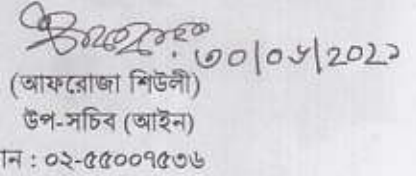 ৩০|০৬|২০২১
(আফরোজা শিউলী)
উপ-সচিব (আইন)
ন : ০২-৫৫০০৭৫৩৬